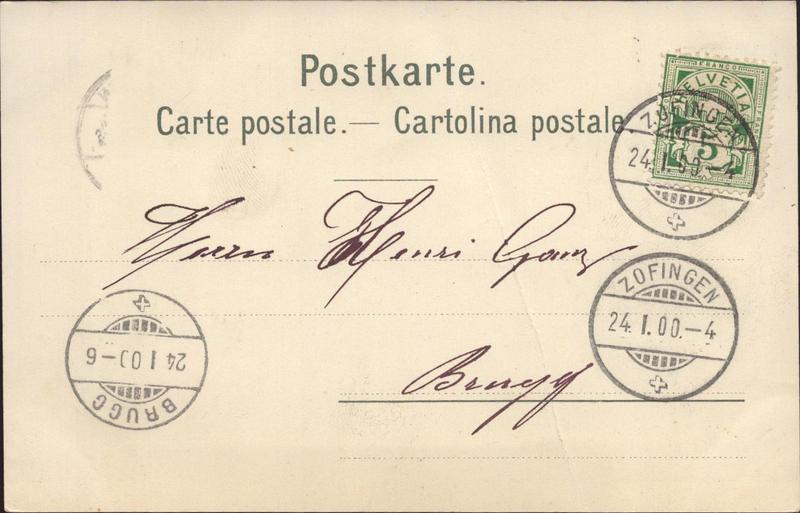 Postkarte.
Carte postale.— Cartolina postale
FRANCO
HELVETIA
5
ZOFINGEN
24.I.00.–4
Herrn Henri Ganz
ZOFINGEN
24.I.00.–4
Brugg
BRUGG
24 I 00–6